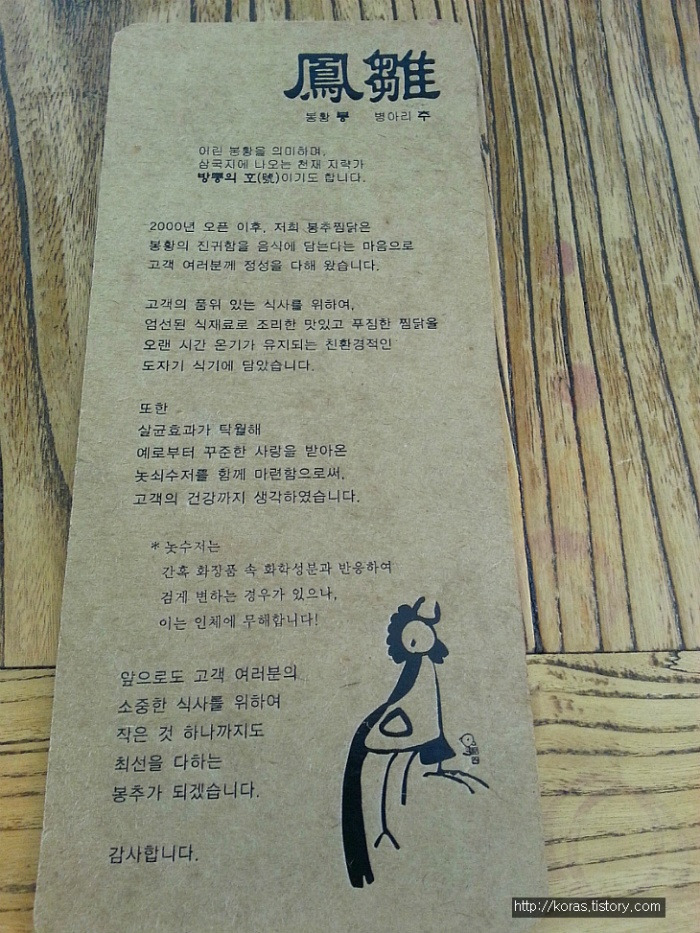 鳳雛
봉황 봉 병아리 추
어린 봉황을 의미하며,
삼국지에 나오는 천재 지략가
방통의 호(號)이기도 합니다.
2000년 오픈 이후, 저희 봉추찜닭은
봉황의 진귀함을 음식에 담는다는 마음으로
고객 여러분께 정성을 다해 왔습니다.
고객의 품위 있는 식사를 위하여,
엄선된 식재료로 조리한 맛있고 푸짐한 찜닭을
오랜 시간 온기가 유지되는 친환경적인
도자기 식기에 담았습니다.
또한
살균효과가 탁월해
예로부터 꾸준한 사랑을 받아온
놋쇠수저를 함께 마련함으로써,
고객의 건강까지 생각하였습니다.
* 놋수저는
간혹 화장품 속 화학성분과 반응하여
검게 변하는 경우가 있으나,
이는 인체에 무해합니다!
앞으로도 고객 여러분의
소중한 식사를 위하여
작은 것 하나까지도
최선을 다하는
봉추가 되겠습니다.
감사합니다.
http://koras.tistory.com